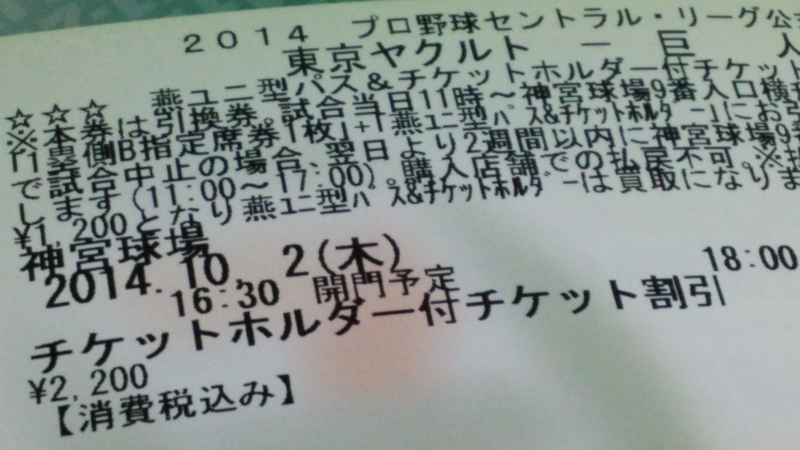 2014 プロ野球セントラル・リーグ公
東京ヤクルト － 巨 人
☆☆☆ 燕ユニ型パス&チケットホルダー付チケット
※本券は引換券。試合当日11時～神宮球場9番入口横
「1塁側B指定席券1枚」+「燕ユニ型パス&チケットホルダー」にお引
で試合中止の場合、翌日より2週間以内に神宮球場9番
します(11:00～17:00)。購入店舗での払戻不可。※
¥1,200となり燕ユニ型パス&チケットホルダーは買取になりま
神宮球場
2014.10. 2(木) 18:00
16:30 開門予定
チケットホルダー付チケット割引
¥2,200
【消費税込み】